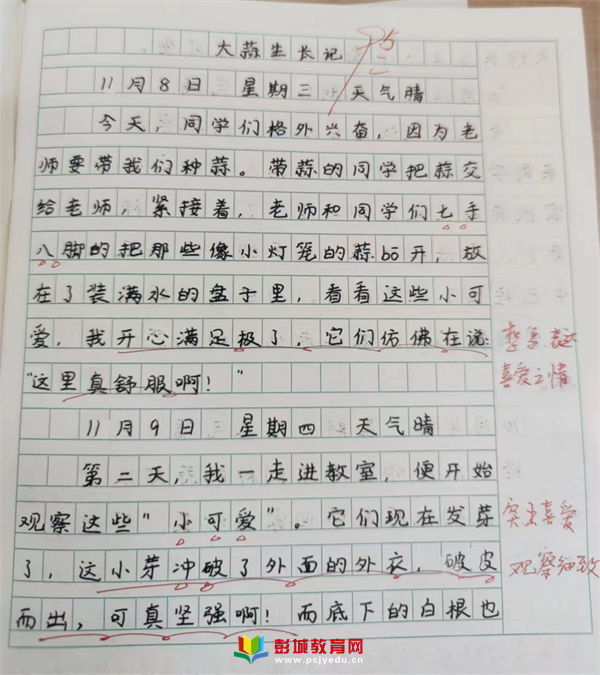 大蒜生长记
11月8日 星期三 天气晴
今天,同学们格外兴奋,因为老
师要带我们种蒜。带蒜的同学把蒜交
给老师,紧接着,老师和同学们七手
八脚的把那些像小灯笼的蒜bō开,放
在了装满水的盆子里,看看这些小可
爱,我开心满足极了,它们仿佛在说
“这里真舒服啊!”
喜爱之情
11月9日 星期四 天气晴
第二天,我一走进教室,便开始
观察这些“小可爱”。它们现在发芽
突出喜爱
了,这小芽冲破了外面的外衣,破皮
观察细致
而出,可真坚强啊!而底下的白根也
彭城教育网
www.pcjyedu.cn